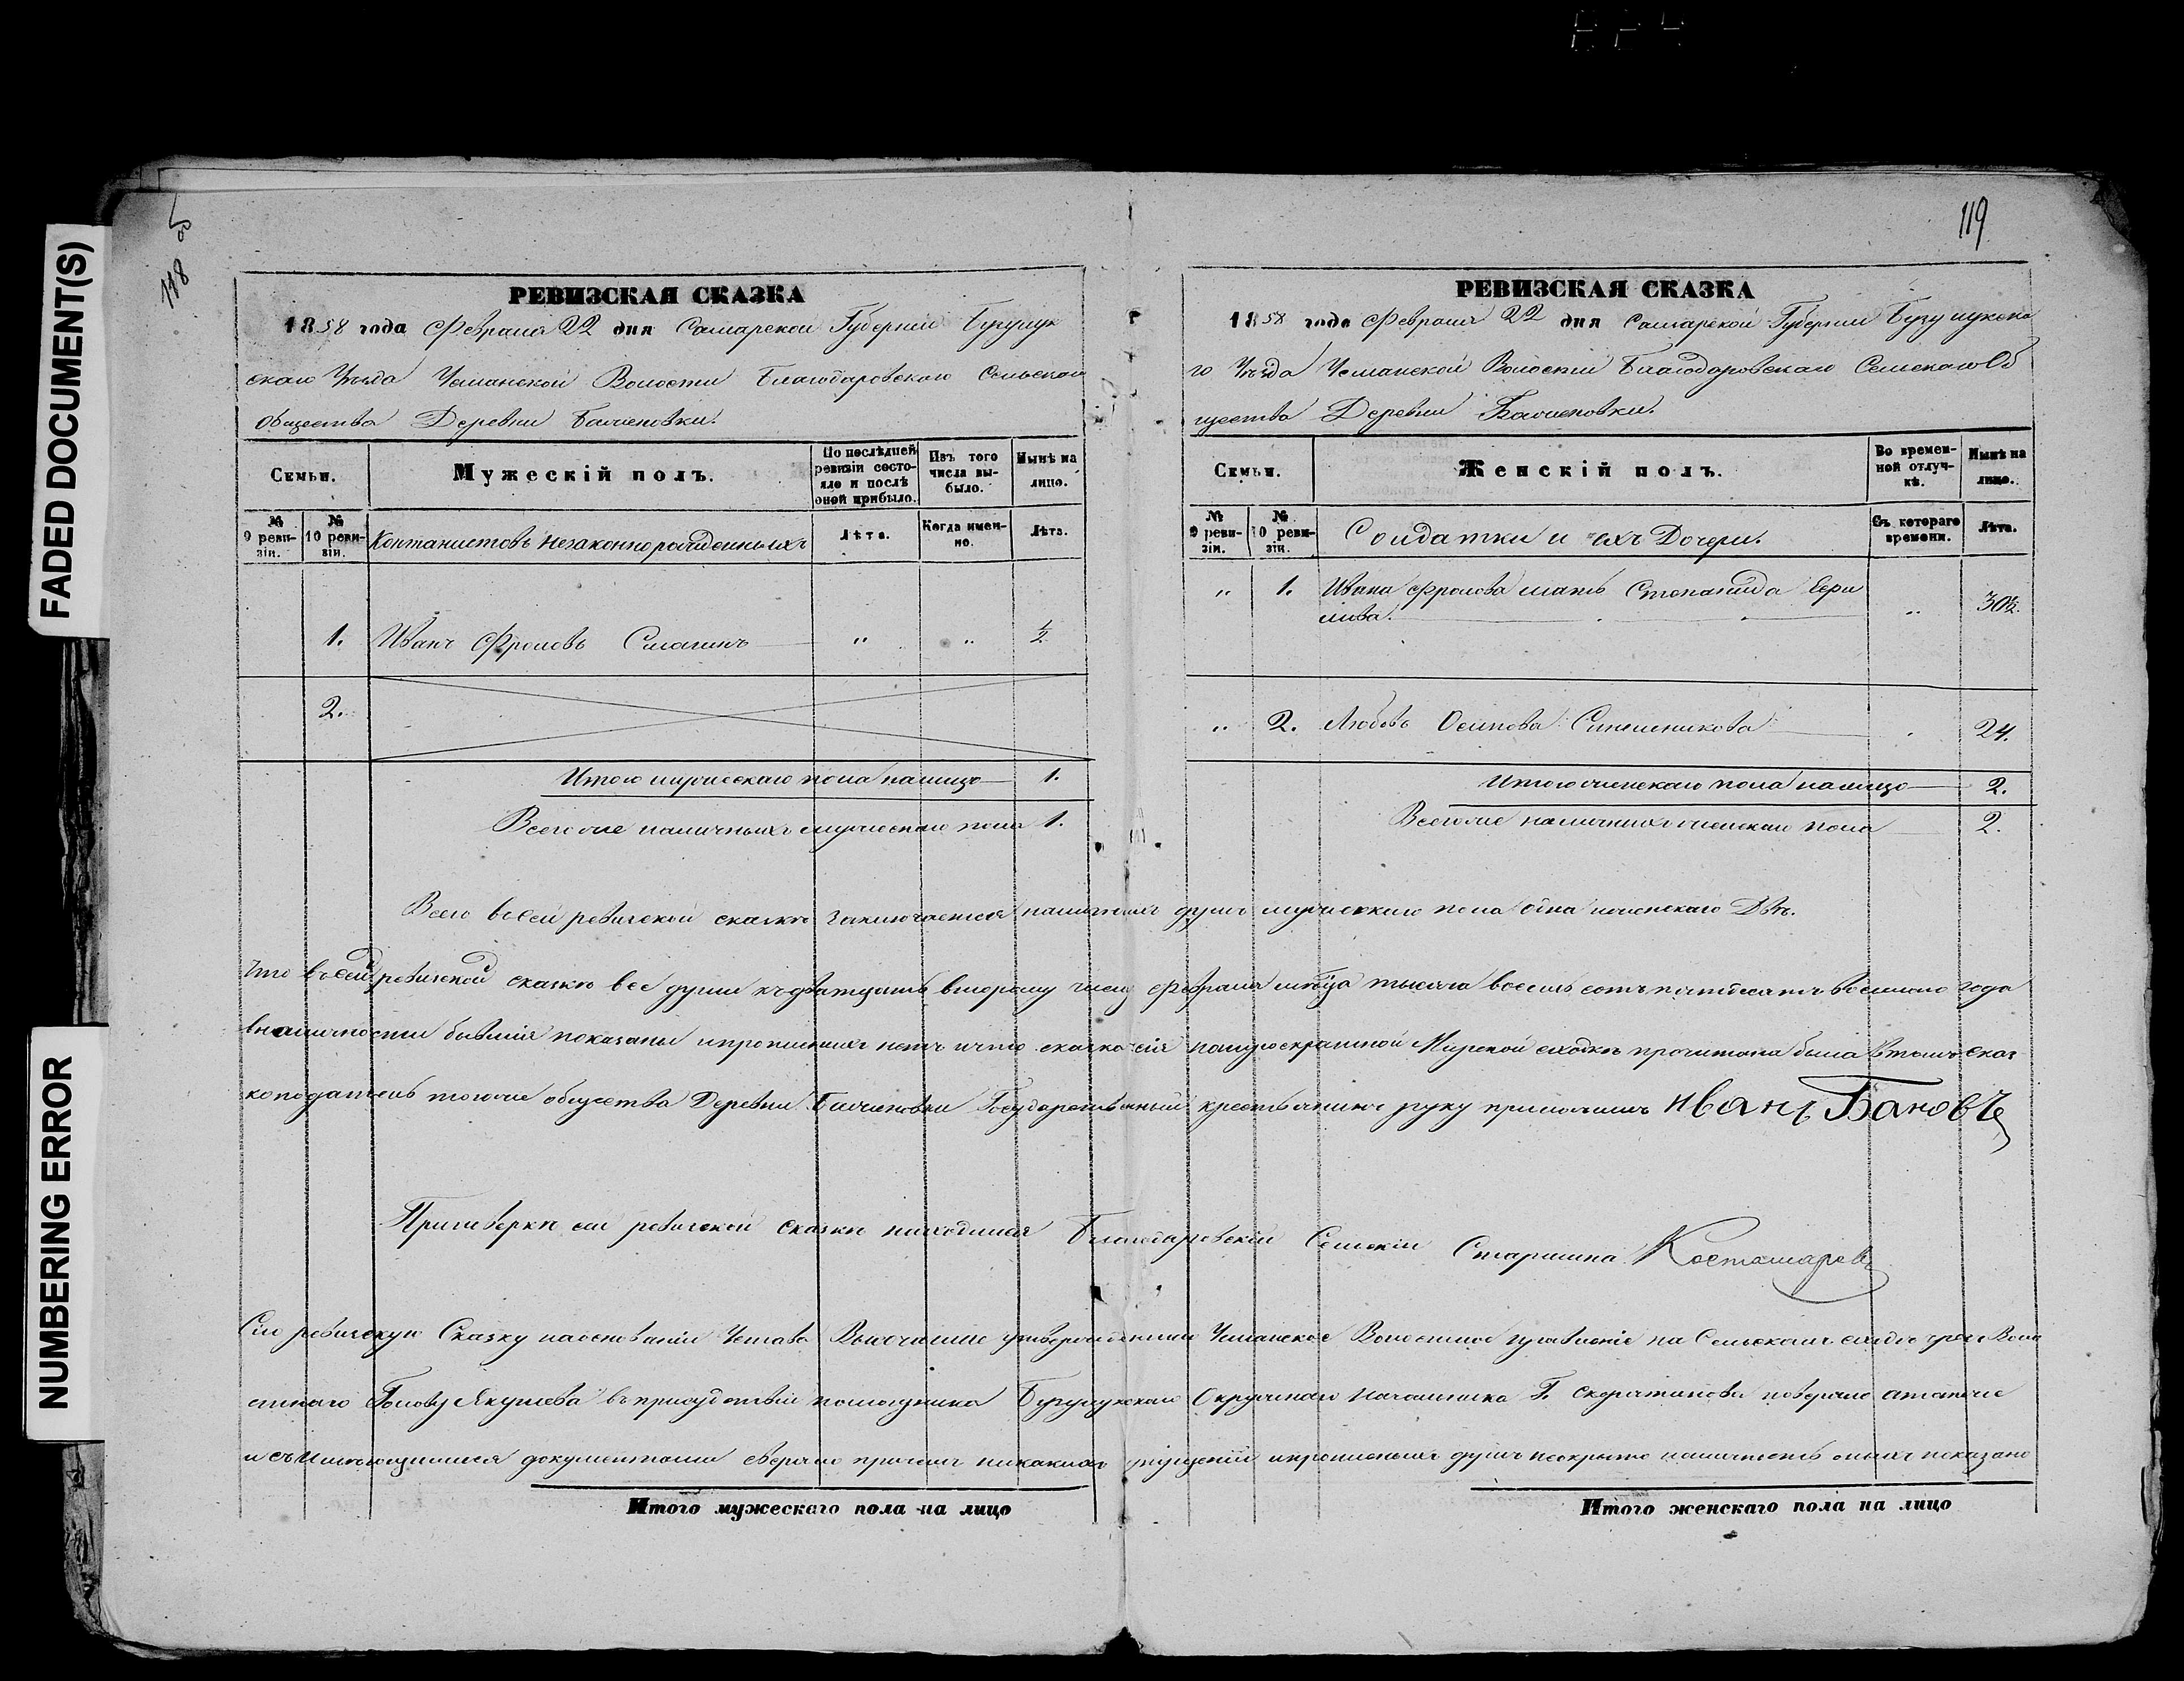 FADED DOCUMENT(S)
NUMBERING ERROR
118 об
119
РЕВИЗСКАЯ СКАЗКА
1858 года Февраля 22 дня Самарской Губернии Бугурук
скаго Уѣзда Усманской Волости Благодаровскаго Сельскаго
Общества Деревни
Семьи.
Мужескій полъ.
По послѣдней ревизіи состояло и послѣ оной прибыло.
Изъ того числа выбыло.
Нынѣ на лицо.
№ 9 ревизіи.
№ 10 ревизіи.
Кантанистовъ незаконнорожденныхъ
Лѣта.
Когда именно.
Лѣта.
1. Иванъ Фроловъ " " ½
2.
Итого мужескаго пола налицо 1.
Всего же наличныхъ мужескаго пола 1.
РЕВИЗСКАЯ СКАЗКА
1858 года Февраля 22 дня Самарской Губернии
го Уѣзда Усманской Волости Благодаровскаго Сельскаго Об
щества Деревни
Семьи.
Женскій полъ.
Во временной отлучкѣ.
Нынѣ на лицо.
№ 9 ревизіи.
№ 10 ревизіи.
Солдатки и ихъ Дочери.
Съ котораго времени.
Лѣта.
" 1. Ивана Фролова мать Степанида Ефи
мова. " 30½.
" 2. Любовь Осипова Синельникова 24.
Итого женскаго пола налицо 2.
Всего же наличныхъ женскаго пола 2.
Всего в сей ревизской сказкѣ заключается наличныхъ душъ мужескаго пола одна женскаго Двѣ.
Что въ сей ревизской сказкѣ все души къ дватцать второму числу Февраля мѣсяца тысяча восемь сотъ пятдесятъ восьмого года
вналичности бывшія показаны ипрописныхъ нетъ ичто сказка сія Мирской сходкѣ прочитана была Втомъ сказ
коподатель тогоже общества Деревни Государственный крестьянинъ руку приложилъ Иванъ Бановъ
Приповеркѣ сей ревизской сказкѣ находился Благодаровскій Сельскій Старшина
Сію ревизскую Сказку наоснованіи Устава Высочайше утвержденнаго Усманское Волостное правленіе на Сельскомъ сходѣ чрезъ Воло
стнаго Голову Якушева въприсудствіи помощника Окружнаго Началника Г. поверяло
и съимѣющимися документами сверяло причемъ никакихъ упущеній ипрописныхъ душъ неокрыто наличность оныхъ показано
Итого мужескаго пола на лицо
Итого женскаго пола на лицо